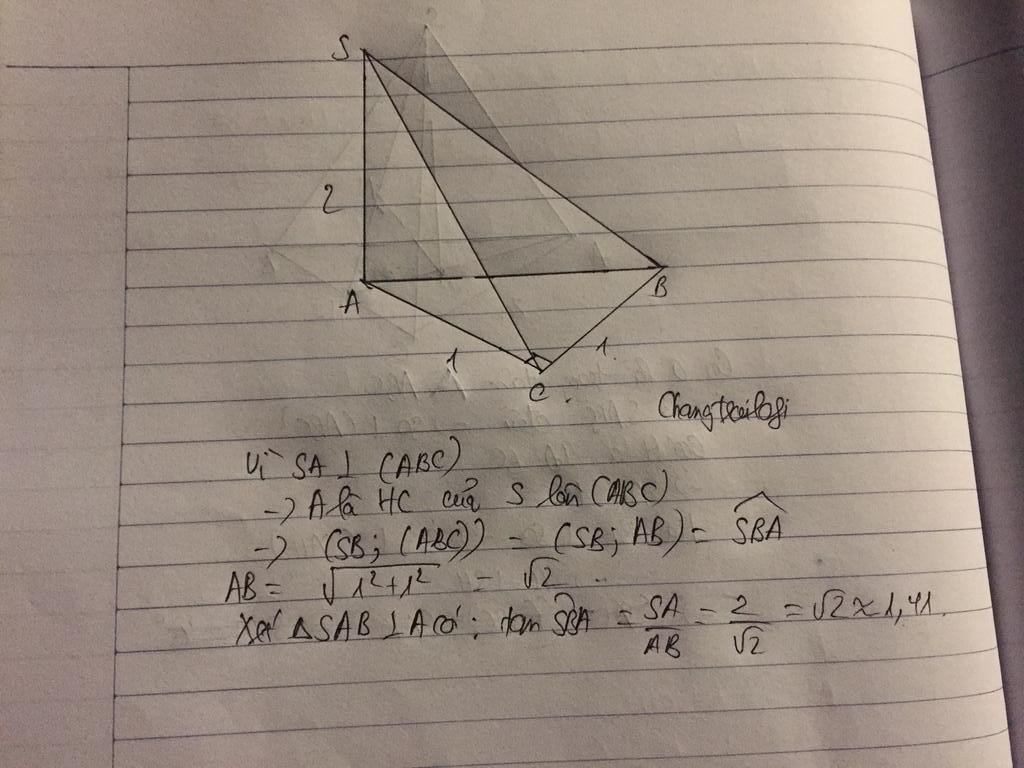 S
2
A
B
1
1.
C.
Vì SA ⊥ (ABC)
-> A là HC của S lên (ABC)
-> (SB; (ABC)) = (SB; AB) = \widehat{SBA}
AB = √(1²+1²) = √2
Xét △SAB ⊥ A có: tan \widehat{SBA} = SA/AB = 2/√2 = √2 ≈ 1,41.